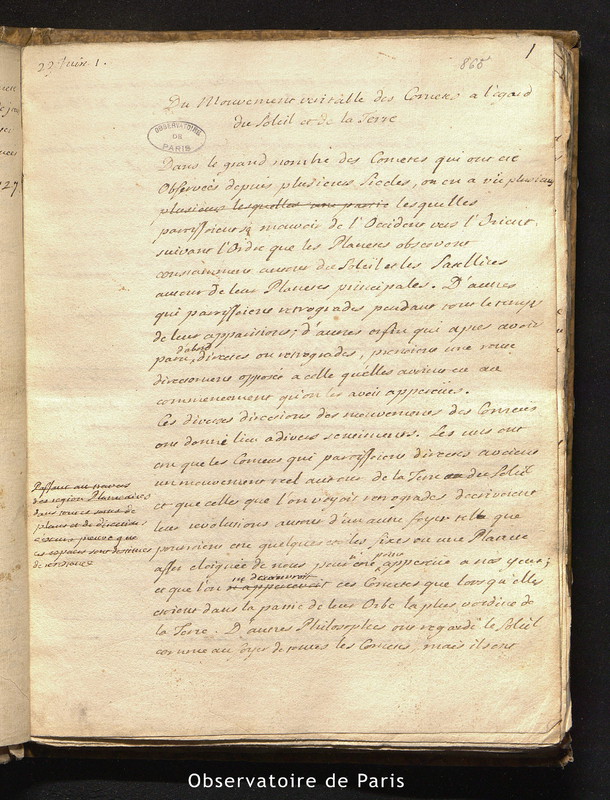 22 Juin 1.
865
1
Du Mouvement veritable des Cometes a l'égard
du Soleil et de la Terre
OBSERVATOIRE
DE
PARIS
Dans le grand nombre des Cometes qui ont eté
Observées depuis plusieurs Siecles, on en a vû plusieurs
plusieurs lesquelles lesquelles
paroissoient se mouvoir de l'Occident vers l'Orient,
suivant l'Ordre que les Planetes observent
constamment autour du Soleil et les Satellites
autour de leurs Planetes principales. D'autres
qui paroissoient retrogrades pendant tout le temps
de leur apparitions; d'autres enfin qui apres avoir
paru d'abord directes ou retrogrades, prenoient une route
directement opposée a celle qu'elles avoient eu au
commencement qu'on les avoit apperceües.
Ces diverses directions des mouvements des Cometes
ont donné lieu a divers sentiments. Les uns ont
cru que les Cometes qui paroissoient directes avoient
un mouvement reel autour de la Terre ou du Soleil
et que celles que l'on voyoit retrogrades decrivoient
leurs revolutions autour d'un autre foyer tel que
pourroient etre quelques etoiles fixes ou une Planete
assez eloignée de nous pour etre apperceüe a nos yeux;
et que l'on ne decouvroit ces Cometes que lorsqu'elles
etoient dans la partie de leur Orbe la plus voisine de
la Terre. D'autres Philosophes ont regardé le Soleil
comme au foyer de toutes les Cometes, mais ils ont
region Planetaire
dans toute sorte de
plans et de directions
preuve que
ces espaces sont destitués
de resistance
27
Observatoire de Paris